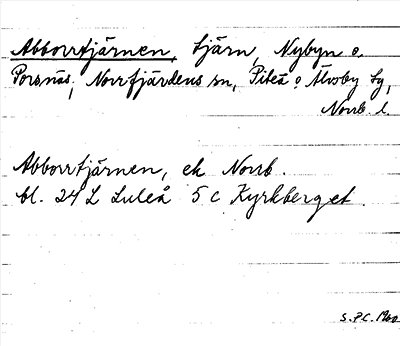 Abborrtjärnen, tjärn, Nybyn o.
Porsnäs, Norrfjärdens sn, Piteå o Älvsby tg,
Norrb l.
Abborrtjärnen, ek Norrb.
bl. 24 L Luleå 5 c Kyrkberget.
S.P.C. 1960